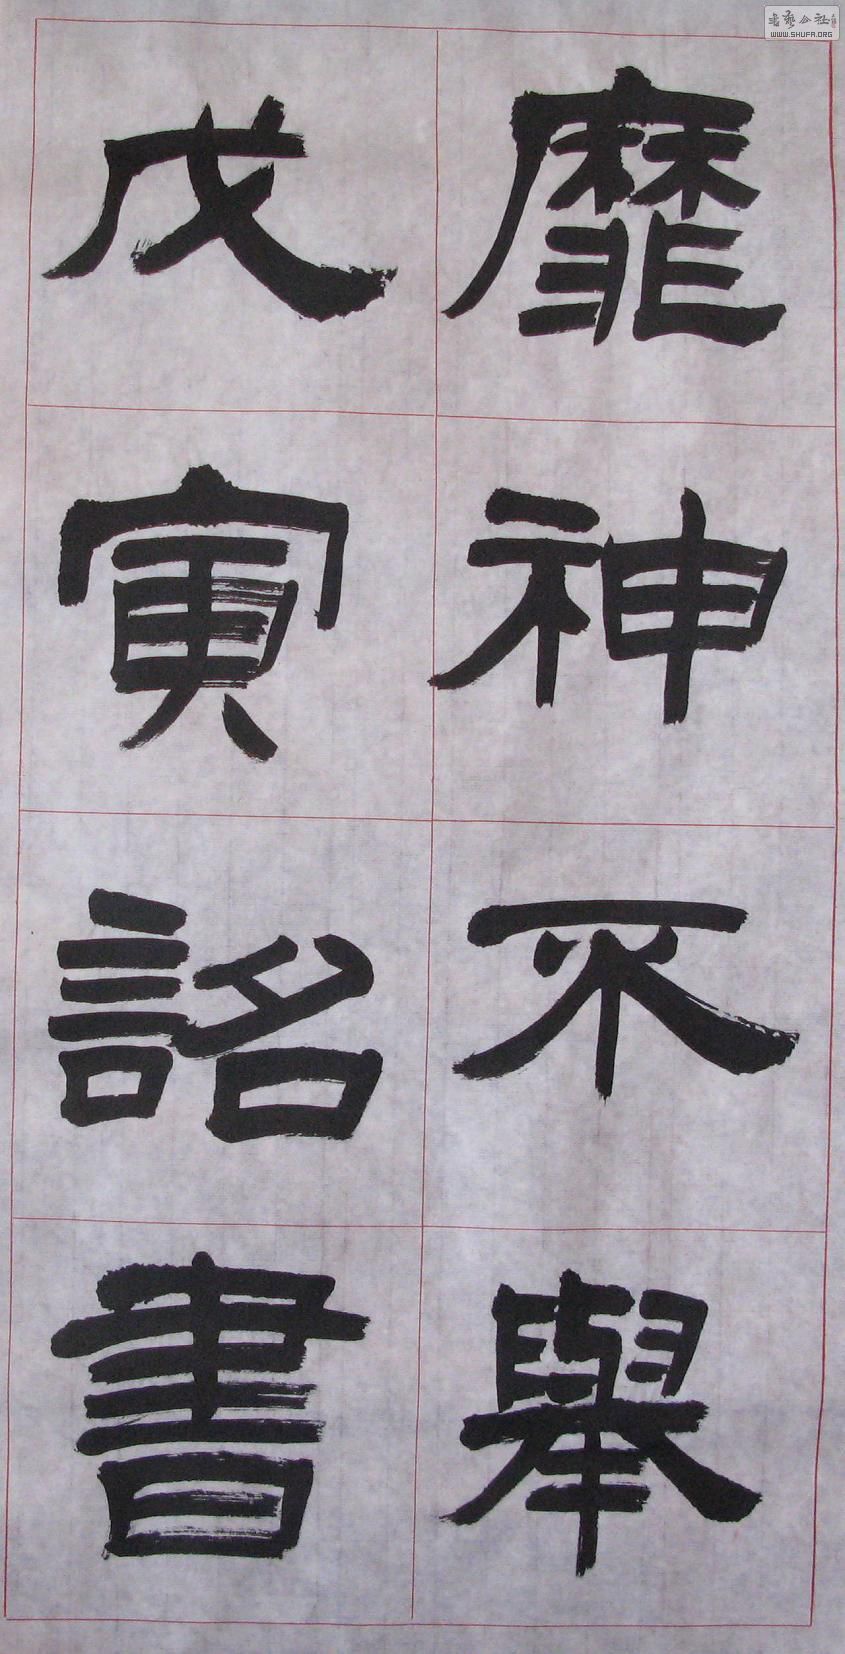 靡神不舉
戊寅詔書
書藝公社
WWW.SHUFA.ORG